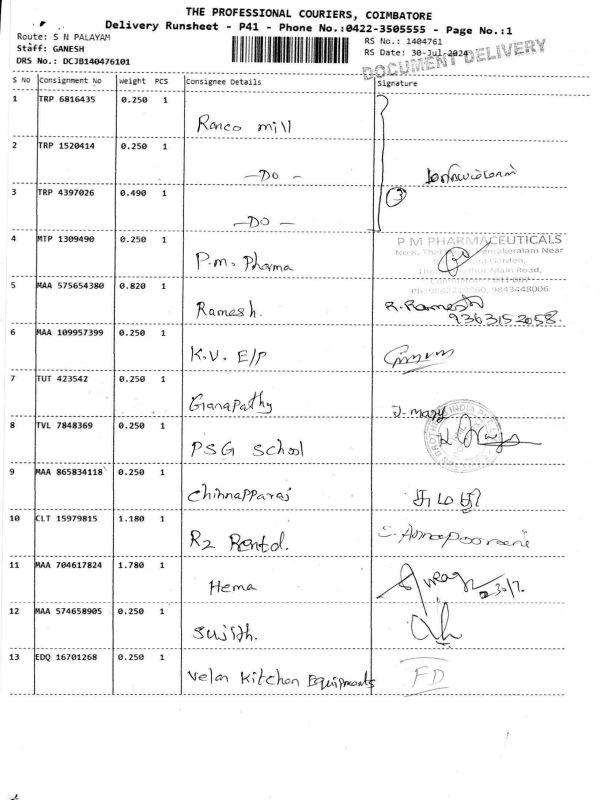 THE PROFESSIONAL COURIERS, COIMBATORE
Delivery Runsheet - P41 - Phone No.:0422-3505555 - Page No.:1
Route: S N PALAYAM
Staff: GANESH
DRS No.: DCJB140476101
RS No.: 1404761
RS Date: 30-Jul-2024
DOCUMENT DELIVERY
S No Consignment No Weight PCS Consignee Details Signature
1 TRP 6816435 0.250 1
Ranco mill
2 TRP 1520414 0.250 1
—DO —
3 TRP 4397026 0.490 1
3
—DO —
4 MTP 1309490 0.250 1
P.m. Pharma
P M PHARMACEUTICALS
Garden,
Main Road,
9843448006
5 MAA 575654380 0.820 1
Ramesh.
R. Ramesh
9363152058.
6 MAA 109957399 0.250 1
K.V. E/P
7 TUT 423542 0.250 1
Ganapathy
J. mary
8 TVL 7848369 0.250 1
PSG School
9 MAA 865834118 0.250 1
Chinnapparaj
சுமதி
10 CLT 15979815 1.180 1
R2 Rental.
S. Annapoorani
11 MAA 704617824 1.780 1
Hema
30/7.
12 MAA 574658905 0.250 1
Sujith.
13 EDQ 16701268 0.250 1
Velan Kitchen Equipments
FD